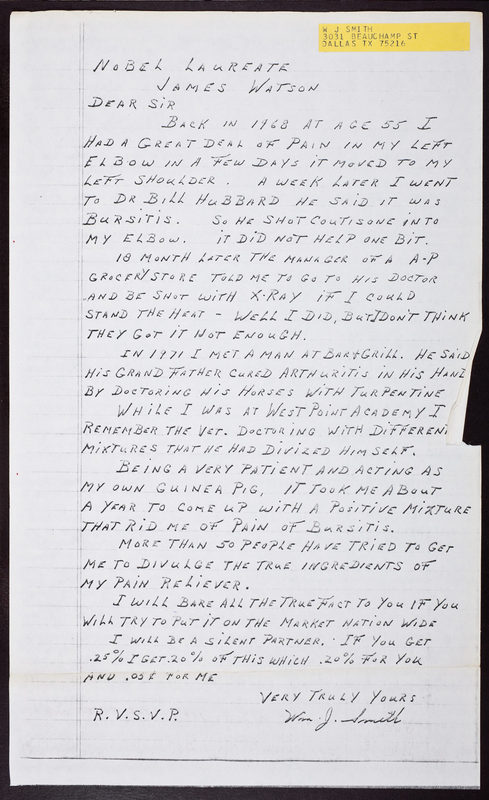 W J SMITH
3031 BEAUCHAMP ST
DALLAS TX 75216
NOBEL LAUREATE
JAMES WATSON
DEAR SIR
BACK IN 1968 AT AGE 55 I
HAD A GREAT DEAL OF PAIN IN MY LEFT
ELBOW IN A FEW DAYS IT MOVED TO MY
LEFT SHOULDER. A WEEK LATER I WENT
TO DR BILL HUBBARD HE SAID IT WAS
BURSITIS. SO HE SHOT COUTISONE INTO
MY ELBOW. IT DID NOT HELP ONE BIT.
18 MONTH LATER THE MANAGER OF A A-P
GROCERY STORE TOLD ME TO GO TO HIS DOCTOR
AND BE SHOT WITH X-RAY IF I COULD
STAND THE HEAT - WELL I DID, BUT I DON'T THINK
THEY GOT IT HOT ENOUGH.
IN 1971 I MET A MAN AT BAR+GRILL. HE SAID
HIS GRAND FATHER CURED ARTHURITIS IN HIS HAND
BY DOCTORING HIS HORSES WITH TURPENTINE
WHILE I WAS AT WEST POINT ACADEMY I
REMEMBER THE VET. DOCTORING WITH DIFFEREN
MIXTURES THAT HE HAD DIVIZED HIM SELF.
BEING A VERY PATIENT AND ACTING AS
MY OWN GUINEA PIG, IT TOOK ME ABOUT
A YEAR TO COME UP WITH A POSITIVE MIXTURE
THAT RID ME OF PAIN OF BURSITIS.
MORE THAN 50 PEOPLE HAVE TRIED TO GET
ME TO DIVULGE THE TRUE INGREDIENTS OF
MY PAIN RELIEVER.
I WILL BARE ALL THE TRUE FACT TO YOU IF YOU
WILL TRY TO PUT IT ON THE MARKET NATION WIDE
I WILL BE A SILENT PARTNER. IF YOU GET
.25% I GET .20% OF THIS WHICH .20% FOR YOU
AND .05¢ FOR ME
VERY TRULY YOURS
R.V.S.V.P. Wm. J. Smith